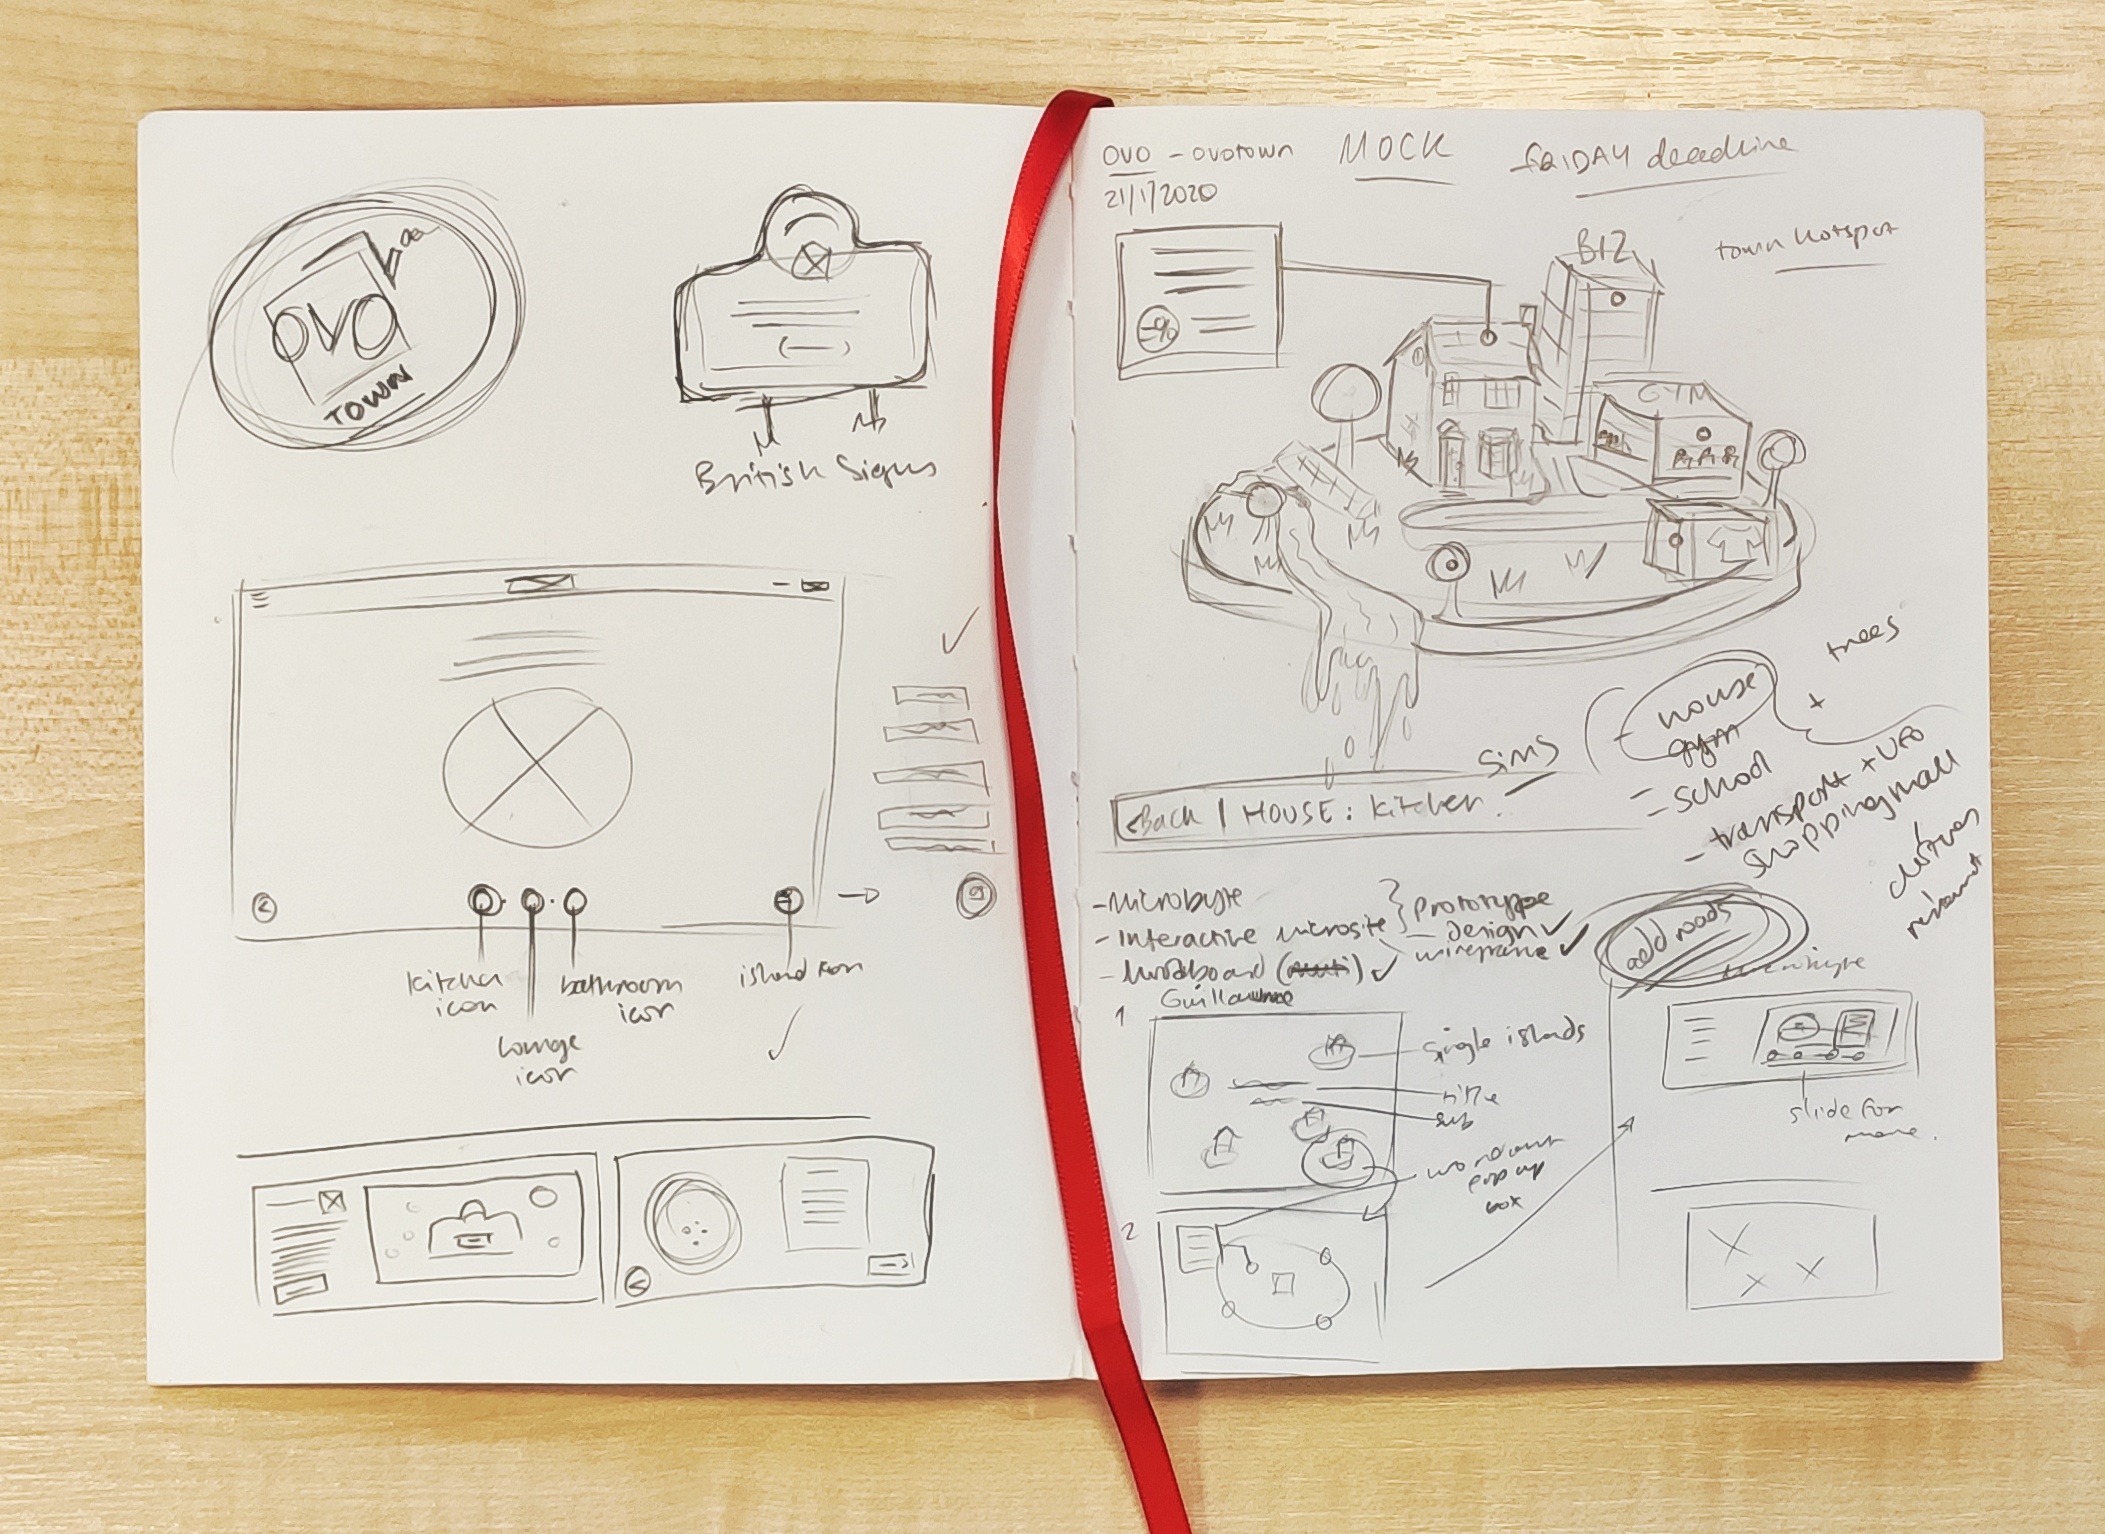 ovo
TOWN
British Signs
kitchen
icon
lounge
icon
bathroom
icon
island icon
OVO - ovotown MOCK FRIDAY deadline
21/1/2020
-%
BIZ
town hotspot
GYM
+ trees
- house
gym
- school
- transport + UFO
shopping mall
Sims
<Back | HOUSE: kitchen
- Microbyte
- Interactive microsite } Prototype
- design ✓
wireframe ✓
- Moodboard ✓
Guillaume
add roads
microbyte
slide for
more.
1
single islands
title
sub
pop up
box
2